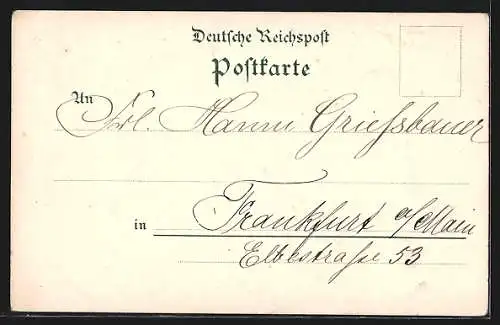 Deutsche Reichspost
Postkarte
An Frl. Hanni Grießbauer
in Frankfurt a/Main
Elbestraße 53